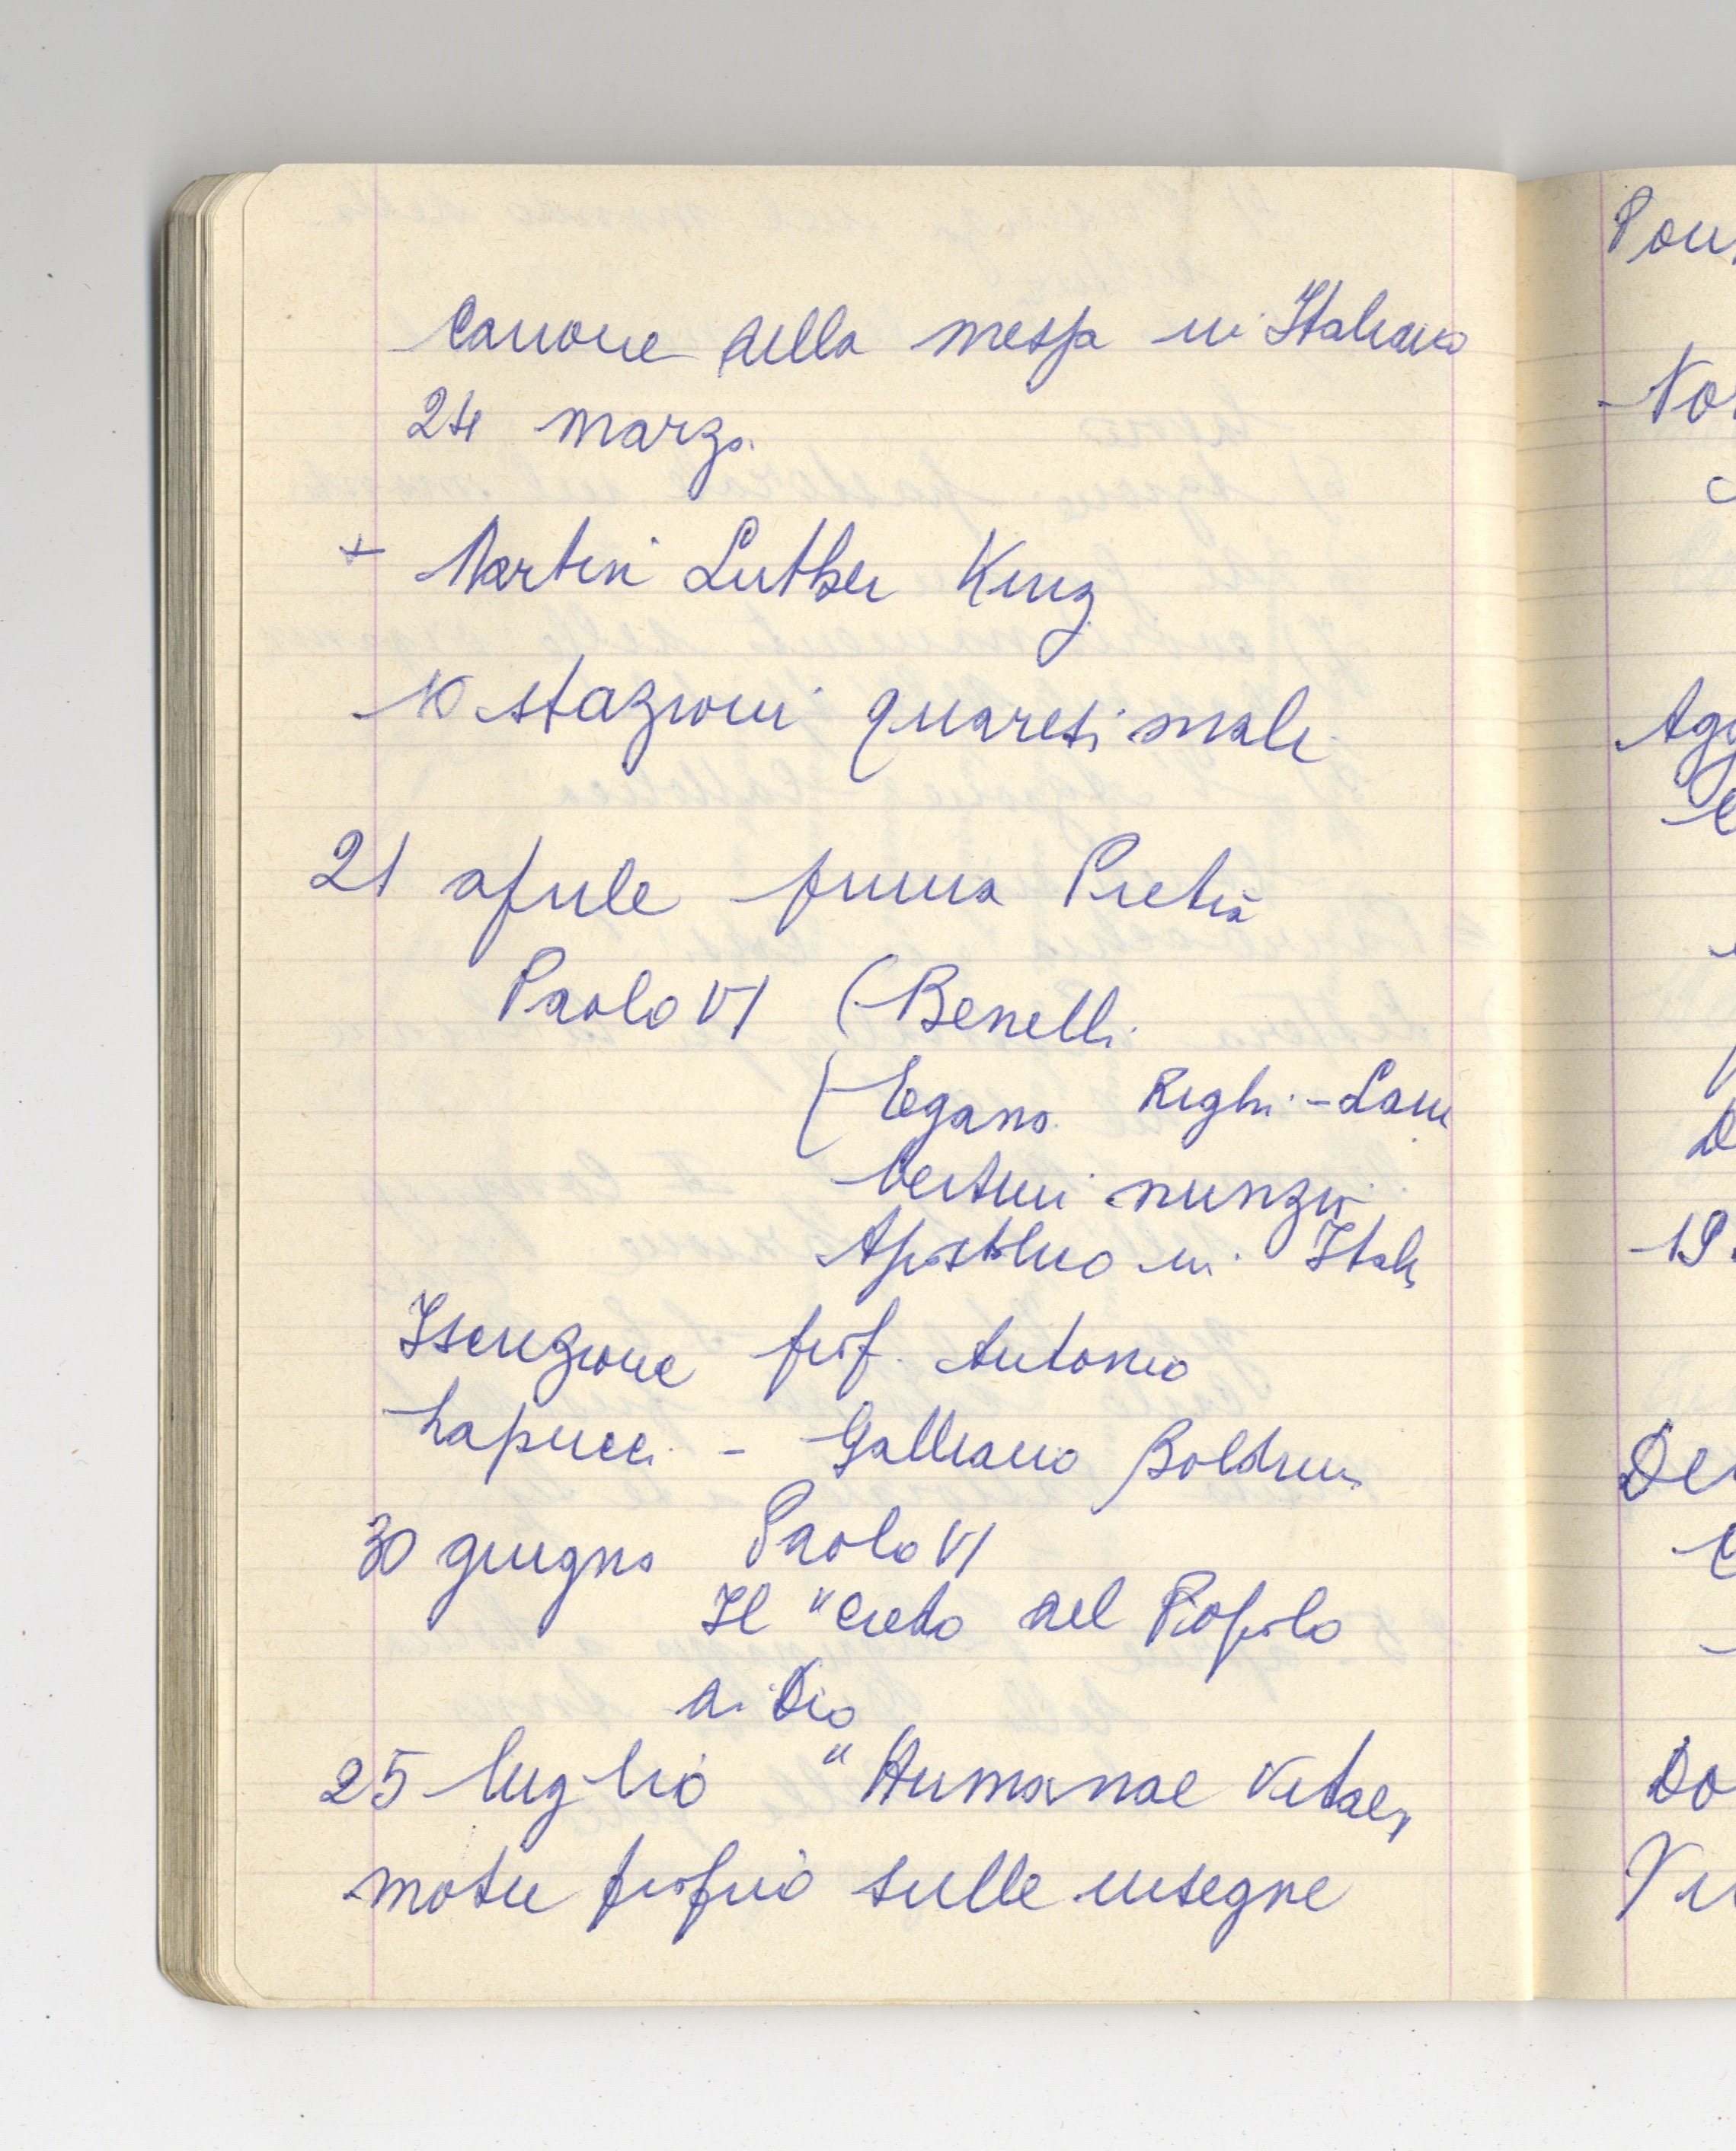 Canone della messa in Italiano
24 marzo.
+ Martin Luther King
10 stazioni quaresimali
21 aprile prima Pietra
Paolo VI (Benelli
(Egano Righi-Lam
bertini nunzio
Apostolico in Italia
Iscrizione prof. Antonio
Lapucci - Galliano Boldrini
30 giugno Paolo VI
Il "Credo del Popolo
di Dio
25 luglio "Humanae Vitae"
motu proprio sulle insegne